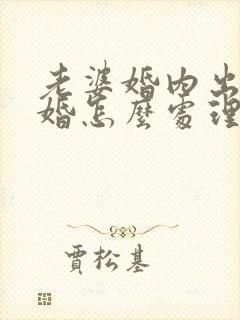 老婆婚内出
婚怎麼處理
賈松基